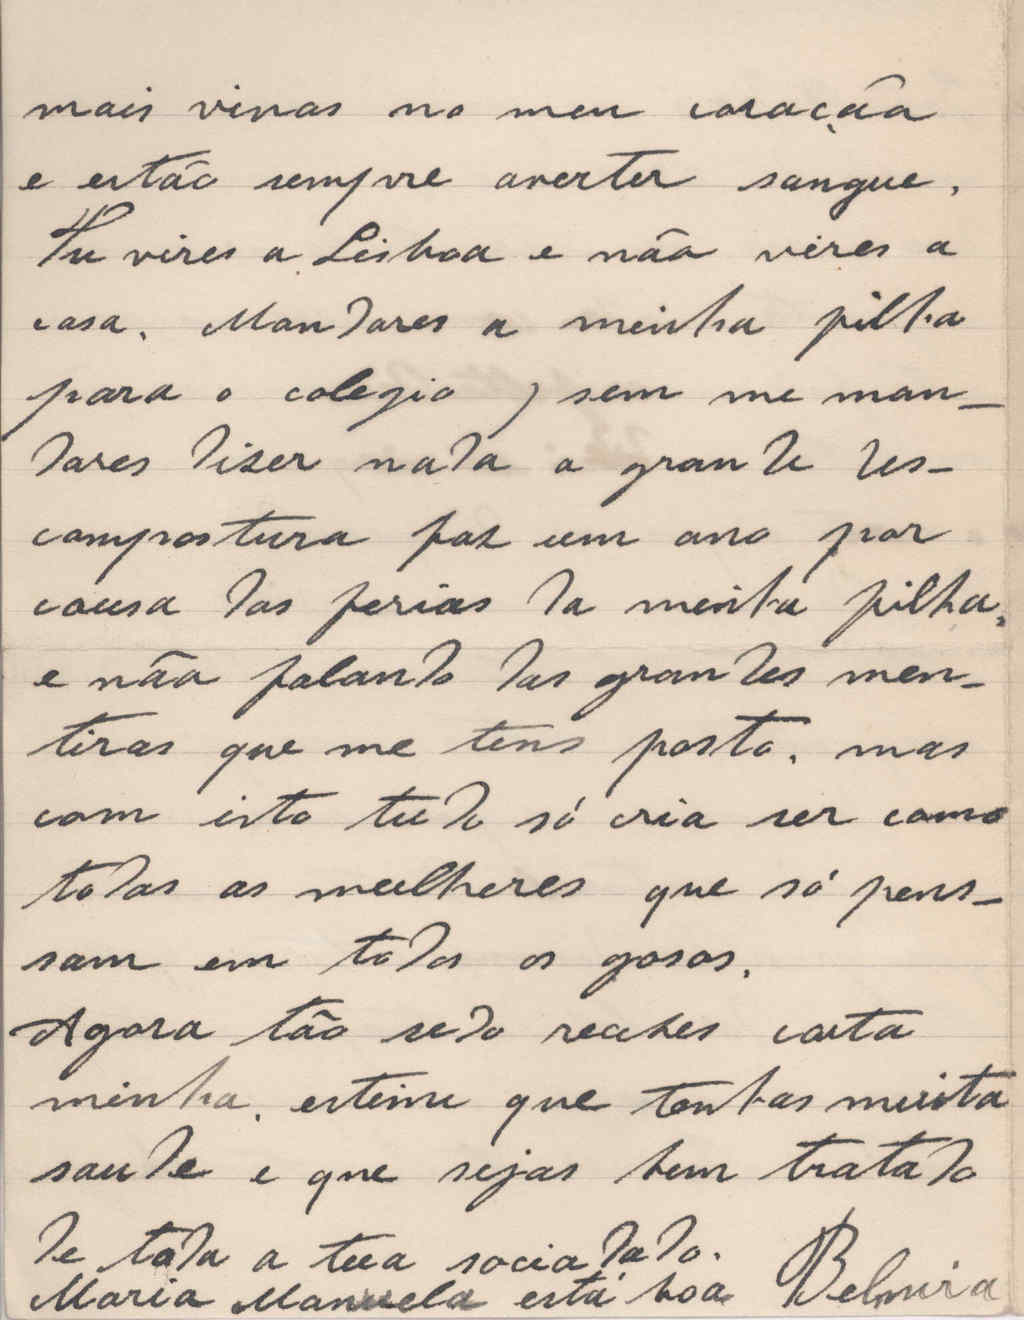 mais vivas no meu coração
e estão sempre averter sangue.
Tu vires a Lisboa e não vires a
casa. Mandares a meinha filha
para o colegio, sem me man-
dares diser nada a grande des-
compostura faz um ano por
causa das ferias da meinha filha,
e não faland das grandes men-
tiras que me tens posto. mas
com isto tudo só cria ser como
todas as mulheres que só pens-
sam em todos os gosos.
Agora tão sedo recebes carta
minha. estimo que tenhas muita
saude e que sejas bem tratado
de toda a tua sociadado.
Maria Manuela está boa Belmira